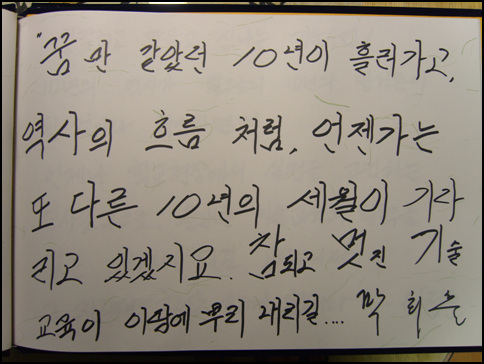 "꿈만 같았던 10년이 흘러가고,
역사의 흐름 처럼, 언젠가는
또 다른 10년의 세월이 기다
리고 있겠지요. 참되고 멋진 기술
교육이 이땅에 뿌리 내리길....